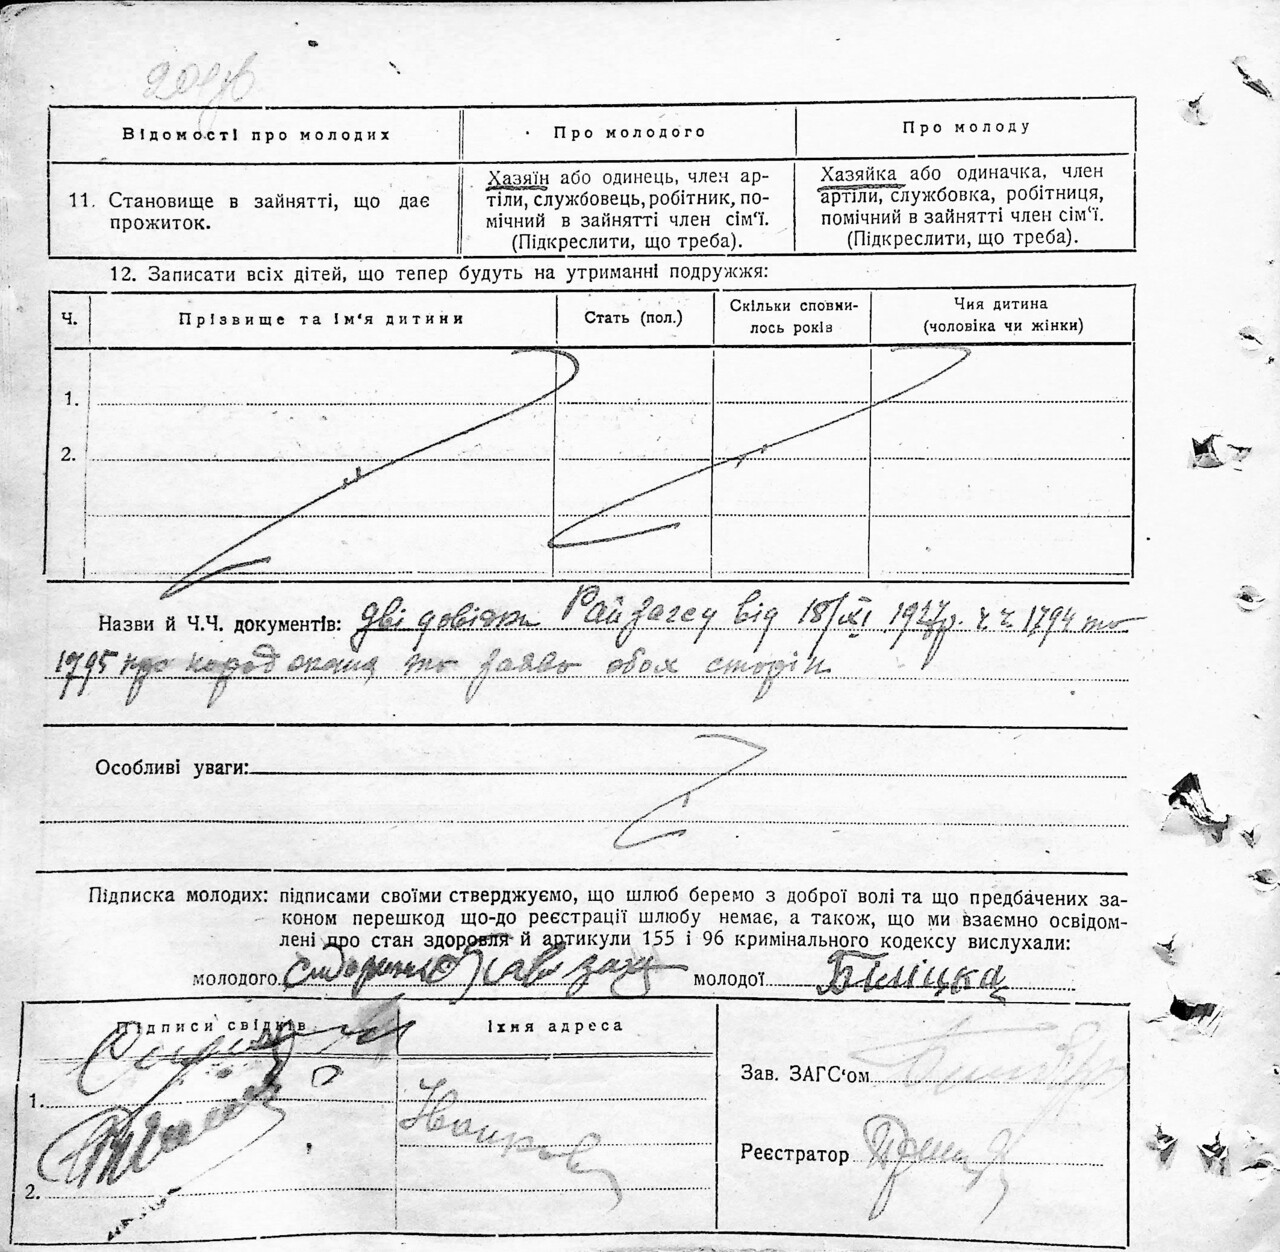 Відомості про молодих
Про молодого
Про молоду
11. Становище в зайнятті, що дає
прожиток.
Хазяїн або одинець, член ар-
тіли, службовець, робітник, по-
мічний в зайнятті член сім'ї.
(Підкреслити, що треба).
Хазяйка або одиначка, член
артіли, службовка, робітниця,
помічний в зайнятті член сім'ї.
(Підкреслити, що треба).
12. Записати всіх дітей, що тепер будуть на утриманні подружжя:
Ч.
Прізвище та ім'я дитини
Стать (пол.)
Скільки сповни-
лось років
Чия дитина
(чоловіка чи жінки)
1.
2.
Назви й Ч.Ч. документів: дві довідки Райзагсу від 18/XI 1927р. ч.ч. 1794 та
1795 про народження та заява обох сторін
Особливі уваги:
Підписка молодих: підписами своїми стверджуємо, що шлюб беремо з доброї волі та що предбачених за-
коном перешкод що-до реєстрації шлюбу немає, а також, що ми взаємно освідом-
лені про стан здоровля й артикули 155 і 96 кримінального кодексу вислухали:
молодого молодої Біліцка
Підписи свідків
Їхня адреса
1.
2.
Зав. ЗАГС'ом
Реєстратор